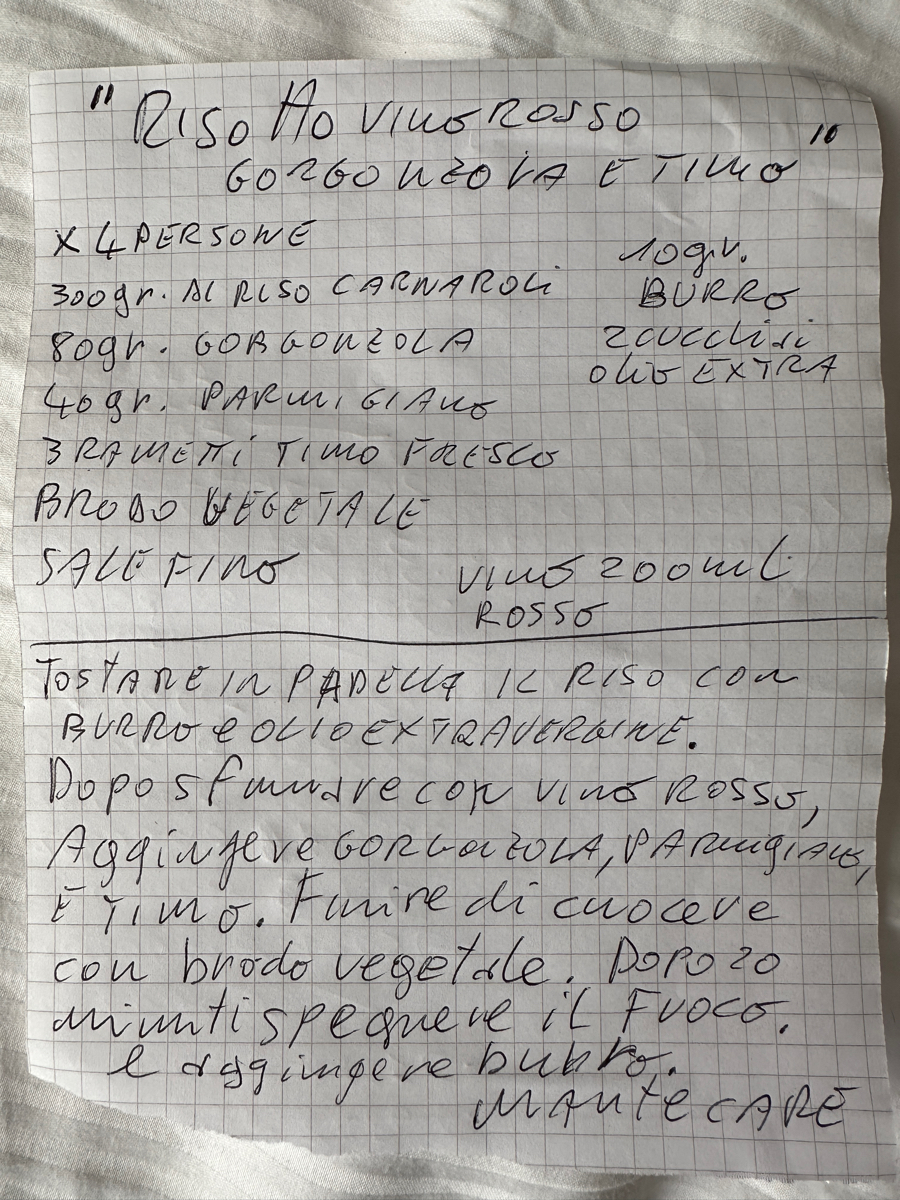 " RISOTTO VINO ROSSO
GORGONZOLA E TIMO "
X 4 PERSONE
300gr. DI RISO CARNAROLI
80gr. GORGONZOLA
40gr. PARMIGIANO
3 RAMETTI TIMO FRESCO
BRODO VEGETALE
SALE FINO
10gr.
BURRO
2 cucchiai
olio EXTRA
VINO 200ml
ROSSO
TOSTARE IN PADELLA IL RISO CON
BURRO e OLIO EXTRAVERGINE.
Dopo sfumare con vino ROSSO,
Aggiungere GORGONZOLA, PARMIGIANO,
E TIMO. Finire di cuocere
con brodo vegetale. DOPO 20
minuti spegnere il FUOCO.
e aggiungere burro.
MANTECARE